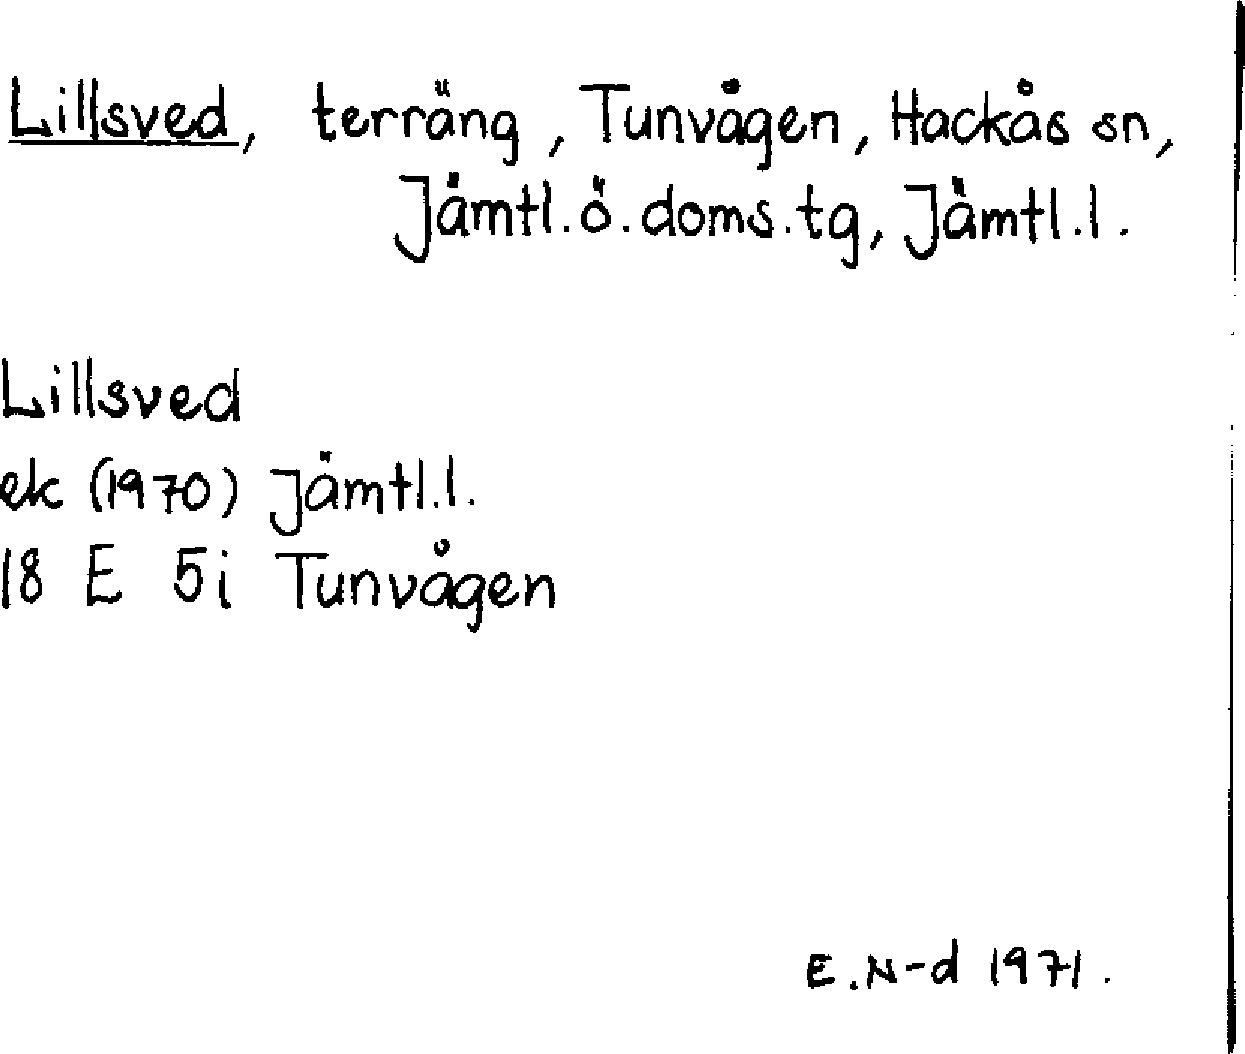 Lillsved, terräng, Tunvågen, Hackås sn,
Jämtl.ö.doms.tg, Jämtl.l.
Lillsved
ek (1970) Jämtl.l.
18 E 5i Tunvågen
E.N-d 1971.